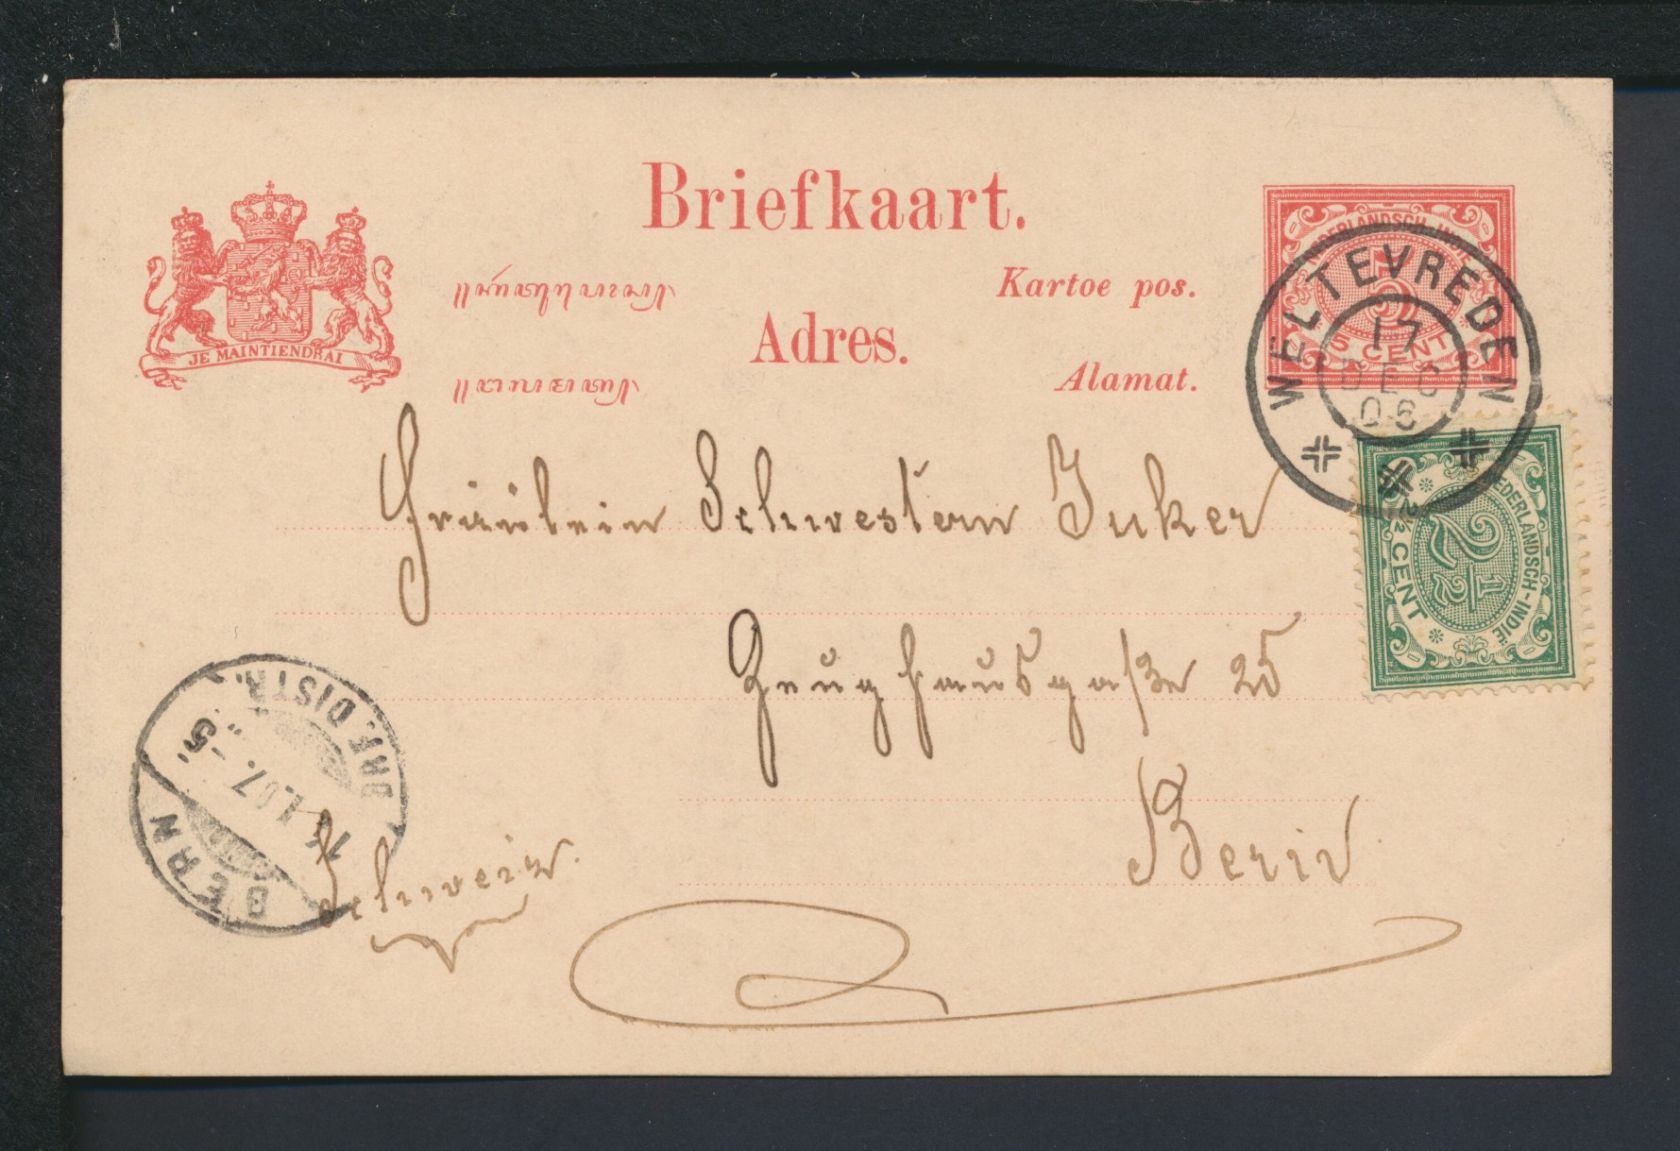 Briefkaart.
Kartoe pos.
Adres.
Alamat.
JE MAINTIENDRAI
NEDERLANDSCH-INDIE
5 CENT
WELTEVREDEN
17
DEC
06
NEDERLANDSCH-INDIE
2½
2½ CENT
Fräulein Schwestern Juker
Zeughausgaße 25
Bern
Schweiz.
BERN
BRF. DISTR.
1.07. - 5